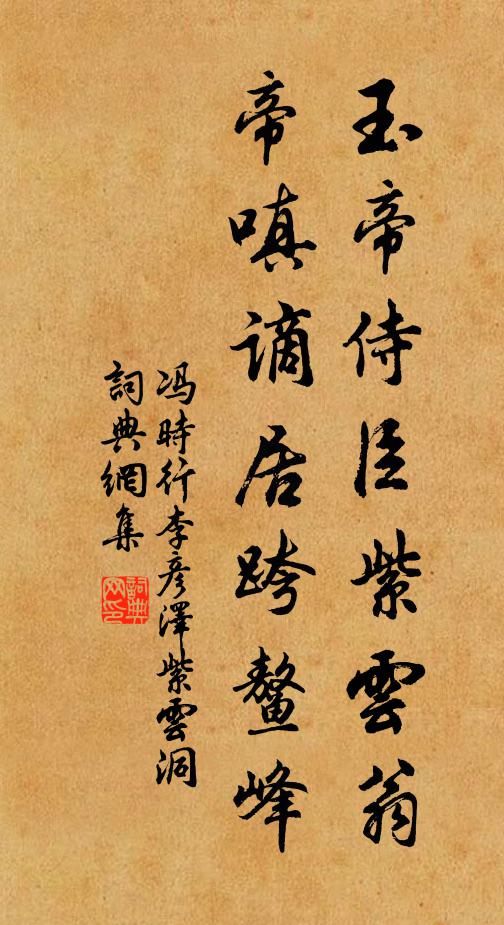 玉帝侍臣紫雲翁
帝嗔謫居跨鰲峰
冯時行李彦澤紫雲洞
詞典網集
詞典
网印